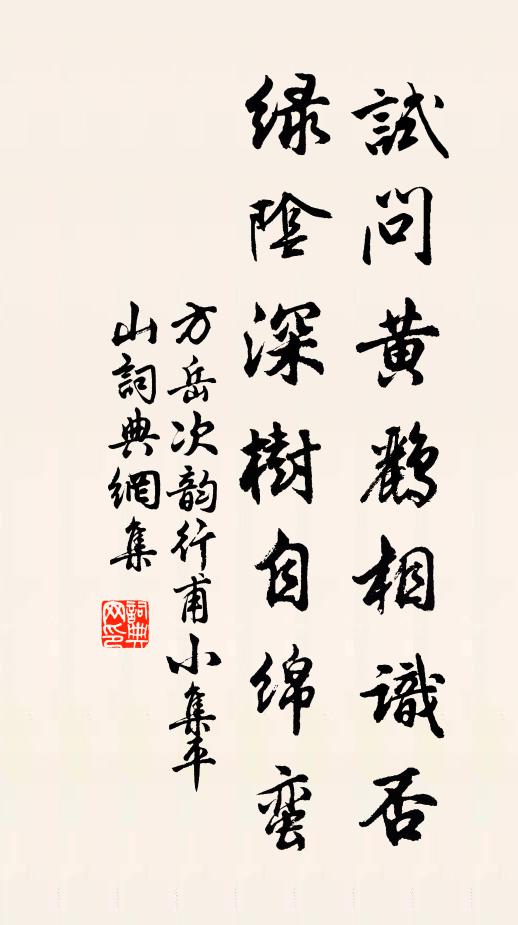 試問黄鸝相識否
緑陰深樹自綿蠻
方岳次韵行甫小集平
山詞典網集
詞典网印